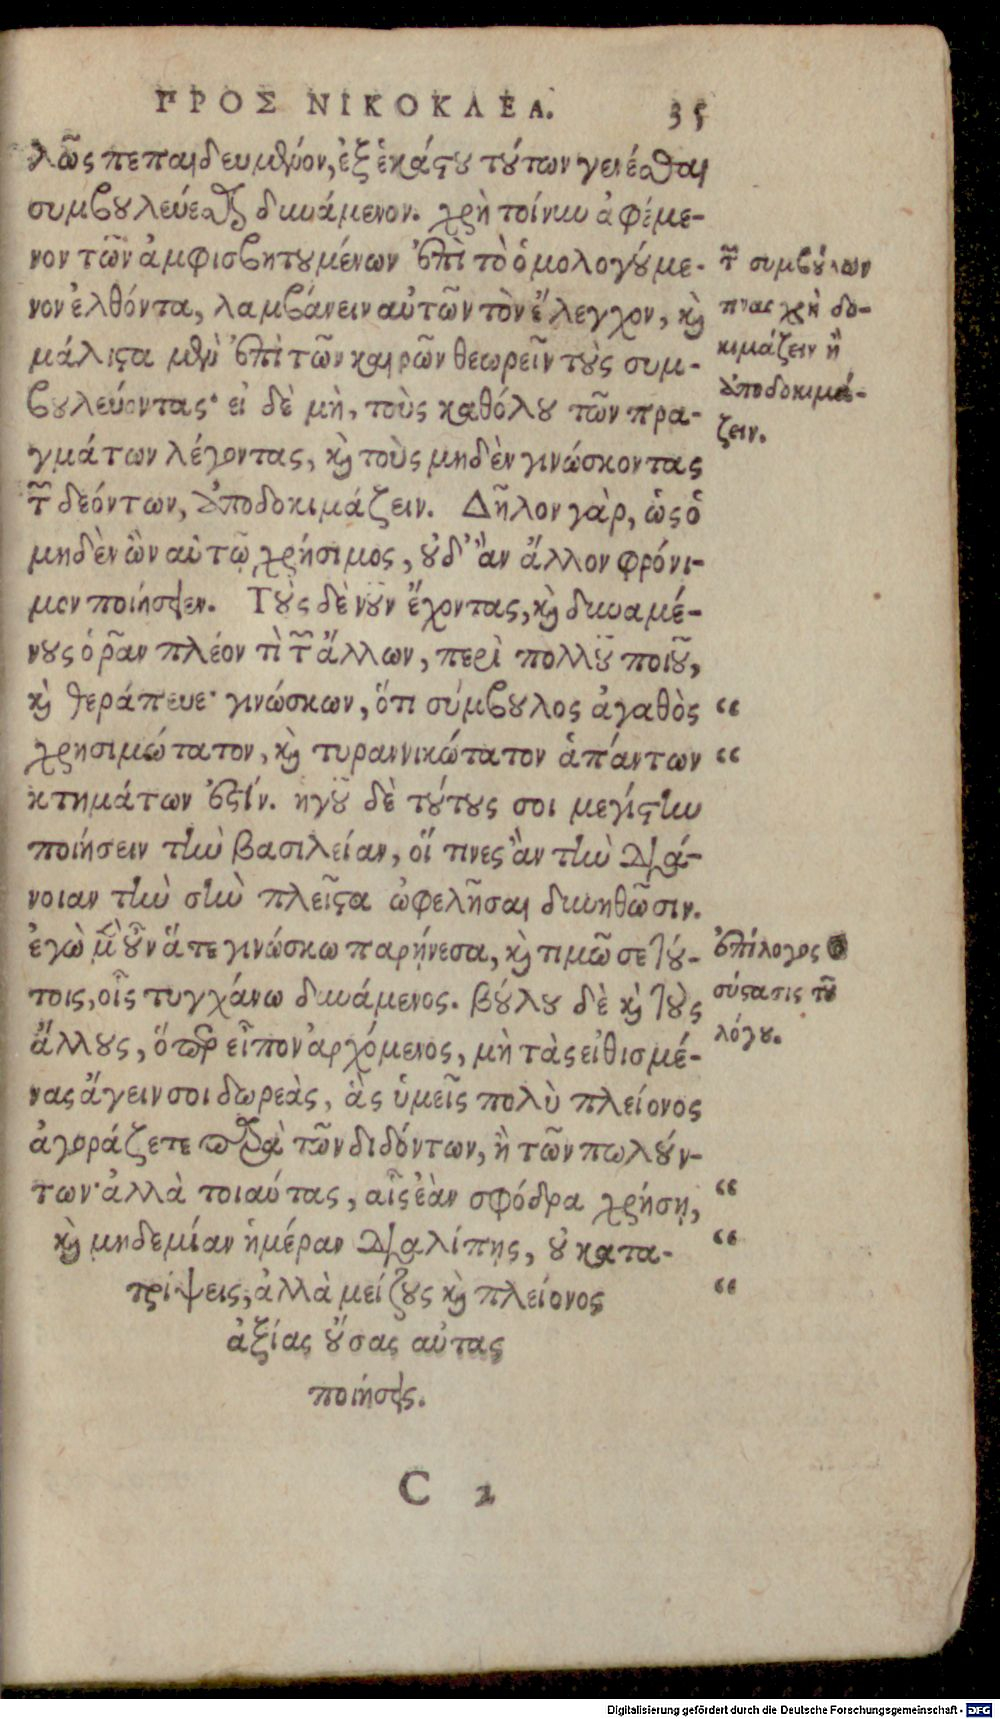 ΠΡΟΣ ΝΙΚΟΚΛΕΑ. 35
λῶς πεπαιδευμένον, ἐξ ἑκάστου τούτων γενέσθαι
συμβουλεύεσθαι δυνάμενον. χρὴ τοίνυν ἀφέμε-
νον τῶν ἀμφισβητουμένων ἐπὶ τὸ ὁμολογούμε-
νον ἐλθόντα, λαμβάνειν αὐτῶν τὸν ἔλεγχον, καὶ
μάλιστα μὲν ἐπὶ τῶν καιρῶν θεωρεῖν τοὺς συμ-
βουλεύοντας· εἰ δὲ μὴ, τοὺς καθόλου τῶν πρα-
γμάτων λέγοντας, καὶ τοὺς μηδὲν γινώσκοντας
τῶν δεόντων, ἀποδοκιμάζειν. Δῆλον γὰρ, ὡς ὁ
μηδὲν ὢν αὑτῷ χρήσιμος, οὐδ' ἂν ἄλλον φρόνι-
μον ποιήσειεν. Τοὺς δὲ νοῦν ἔχοντας, καὶ δυναμέ-
νους ὁρᾶν πλέον τὶ τῶν ἄλλων, περὶ πολλοῦ ποιοῦ,
καὶ θεράπευε· γινώσκων, ὅτι σύμβουλος ἀγαθὸς “
χρησιμώτατον, καὶ τυραννικώτατον ἁπάντων “
κτημάτων ἐστίν. ἡγοῦ δὲ τούτους σοι μεγίστην
ποιήσειν τὴν βασιλείαν, οἵ τινες ἂν τὴν διά-
νοιαν τὴν σὴν πλεῖστα ὠφελῆσαι δυνηθῶσιν.
ἐγὼ μὲν οὖν ἅτε γινώσκω παρῄνεσα, καὶ τιμῶ σε τού-
τοις, οἷς τυγχάνω δυνάμενος. βούλου δὲ καὶ τοὺς
ἄλλους, ὅπερ εἶπον ἀρχόμενος, μὴ τὰς εἰθισμέ-
νας ἄγειν σοι δωρεὰς, ἃς ὑμεῖς πολὺ πλείονος
ἀγοράζετε παρὰ τῶν διδόντων, ἢ τῶν πωλούν-
των· ἀλλὰ τοιαύτας, αἷς ἐὰν σφόδρα χρήσῃ, “
καὶ μηδεμίαν ἡμέραν διαλίπῃς, οὐ κατα- “
τρίψεις, ἀλλὰ μείζους καὶ πλείονος “
ἀξίας οὔσας αὐτας
ποιήσεις.
C 2
τῶν συμβούλων
τινας χρὴ δο-
κιμάζειν ἢ
ἀποδοκιμά-
ζειν.
ἐπίλογος
σύστασις τοῦ
λόγου.
Digitalisierung gefördert durch die Deutsche Forschungsgemeinschaft - DFG